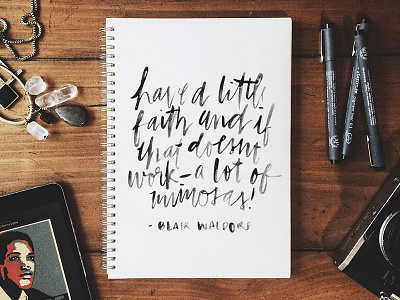 have a little
faith and if
that doesnt
work – a lot of
mimosas!
- BLAIR WALDORF